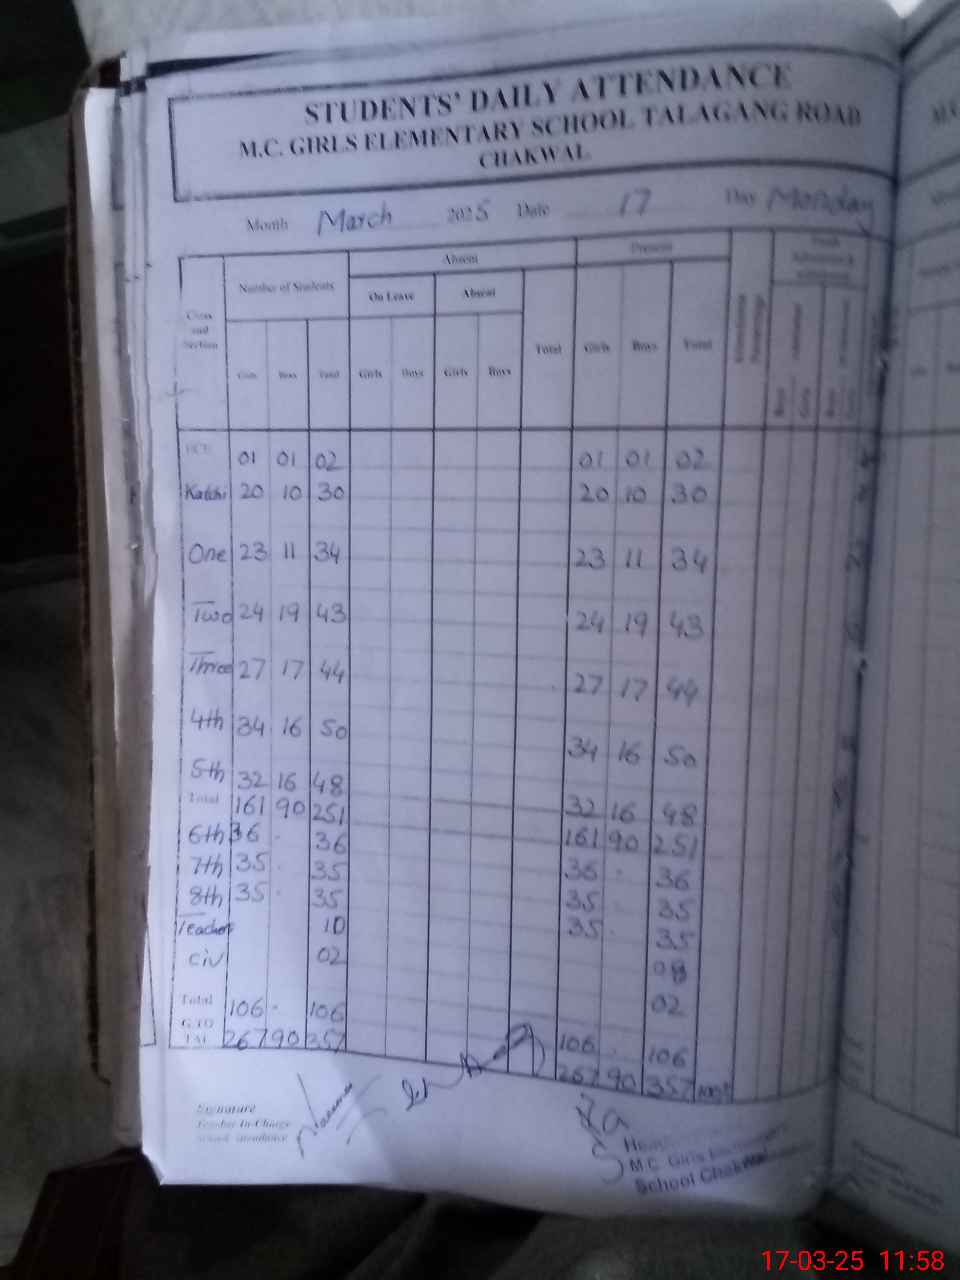 STUDENTS' DAILY ATTENDANCE
M.C. GIRLS ELEMENTARY SCHOOL TALAGANG ROAD
CHAKWAL
Month March 2025 Date 17 Day Monday
Class and Section Number of Students Absent Present
On Leave Absent Total Girls Boys Total
Girls Boys Total Girls Boys Girls Boys
ECE 01 01 02 01 01 02
Katchi 20 10 30 20 10 30
One 23 11 34 23 11 34
Two 24 19 43 24 19 43
Three 27 17 44 27 17 44
4th 34 16 50 34 16 50
5th 32 16 48 32 16 48
Total 161 90 251 161 90 251
6th 36 - 36 36 - 36
7th 35 - 35 35 - 35
8th 35 - 35 35 - 35
Teacher 10 08
civ 02 02
Total 106 - 106 106 - 106
G.TO TAL 267 90 357 267 90 357
Signature
Teacher In-Charge
School Attendance
M.C. Girls
School Chakwal
17-03-25 11:58